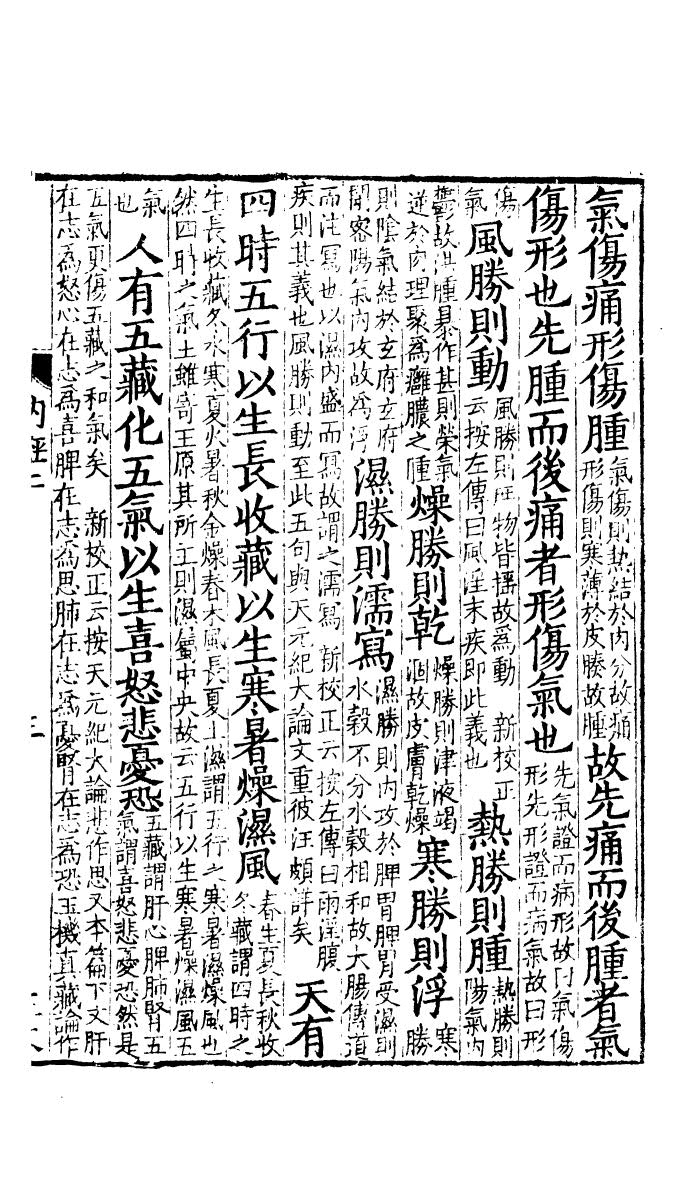 氣傷痛形傷腫
氣傷則熱結於肉分故痛
形傷則寒薄於皮腠故腫
故先痛而後腫者氣
傷形也先腫而後痛者形傷氣也
先氣證而病形故曰氣傷
形先形證而病氣故曰形
傷
氣
風勝則動
風勝則庶物皆搖故爲動 新校正
云按左傳曰風淫末疾即此義也
熱勝則腫
熱勝則
陽氣內
鬱故洪腫暴作甚則榮氣
逆於肉理聚爲癰膿之腫
燥勝則乾
燥勝則津液竭
涸故皮膚乾燥
寒勝則浮
寒
勝
則陰氣結於玄府玄府
閉密陽氣內攻故爲浮
濕勝則濡寫
濕勝則內攻於脾胃脾胃受濕則
水穀不分水穀相和故大腸傳道
而注寫也以濕內盛而寫故謂之濡寫 新校正云按左傳曰雨淫腹
疾則其義也風勝則動至此五句與天元紀大論文重彼注頗詳矣
天有
四時五行以生長收藏以生寒暑燥濕風
春生夏長秋收
冬藏謂四時之
生長收藏冬水寒夏火暑秋金燥春木風長夏土濕謂五行之寒暑濕燥風也
然四時之氣土雖寄王原其所主則濕屬中央故云五行以生寒暑燥濕風五
氣
也
人有五藏化五氣以生喜怒悲憂恐
五藏謂肝心脾肺腎五
氣謂喜怒悲憂恐然是
五氣更傷五藏之和氣矣 新校正云按天元紀大論悲作思又本篇下文肝
在志爲怒心在志爲喜脾在志爲思肺在志爲憂腎在志爲恐玉機真藏論作
內經二